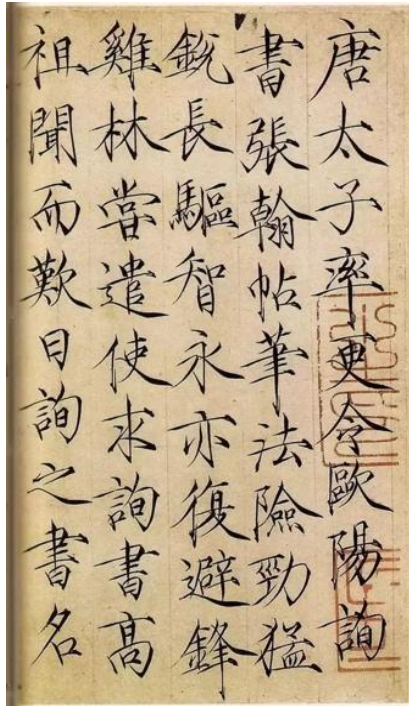 唐太子率更令歐陽詢
書張翰帖筆法險勁猛
銳長驅智永亦復避鋒
雞林嘗遣使求詢書高
祖聞而歎曰詢之書名